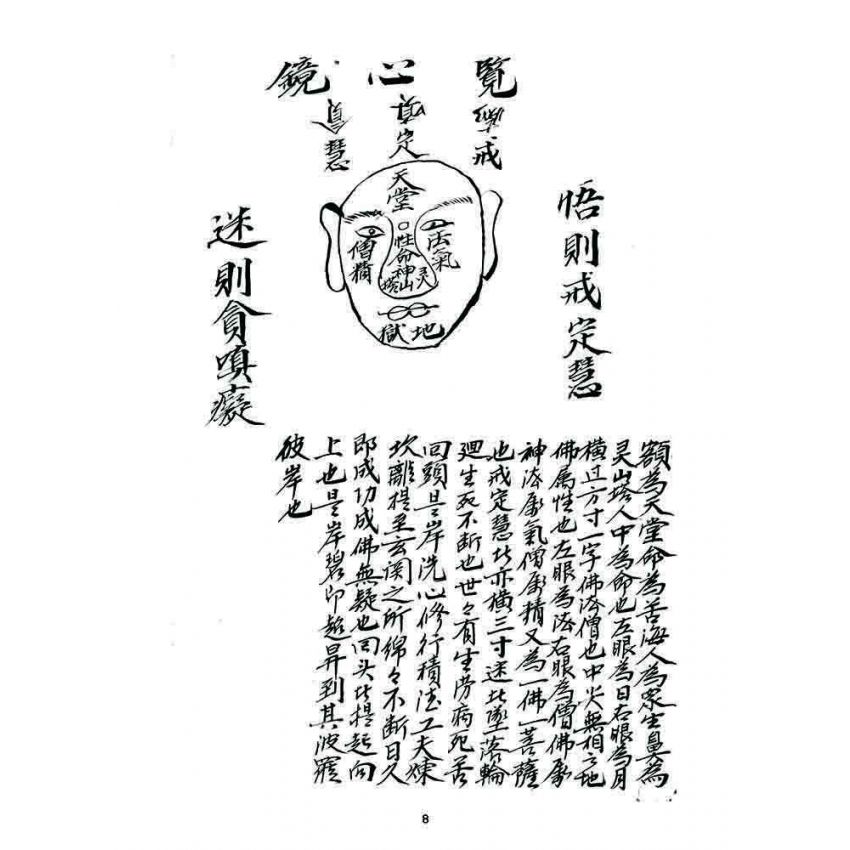 覽心鏡
戒
真定
慧
悟則戒定慧
迷則貪嗔癡
天堂
性命神山塔
灵
法氣
僧精
地獄
額為天堂命為苦海人為衆生鼻為
灵山塔人中為命也左眼為日右眼為月
橫过方寸一字佛法僧也中火無相之地
佛属性也左眼為法右眼為僧佛屬
神法屬氣僧屬精又為一佛一菩薩
也戒定慧此亦橫三寸迷此墜落輪
廻生死不断也世々有生劳病死苦
回頭是岸洗心修行積德工夫煉
坎離提至玄関之所綿々不断日久
即成功成佛無疑也回头此提起向
上也是岸碧印超昇到其波羅
彼岸也
8